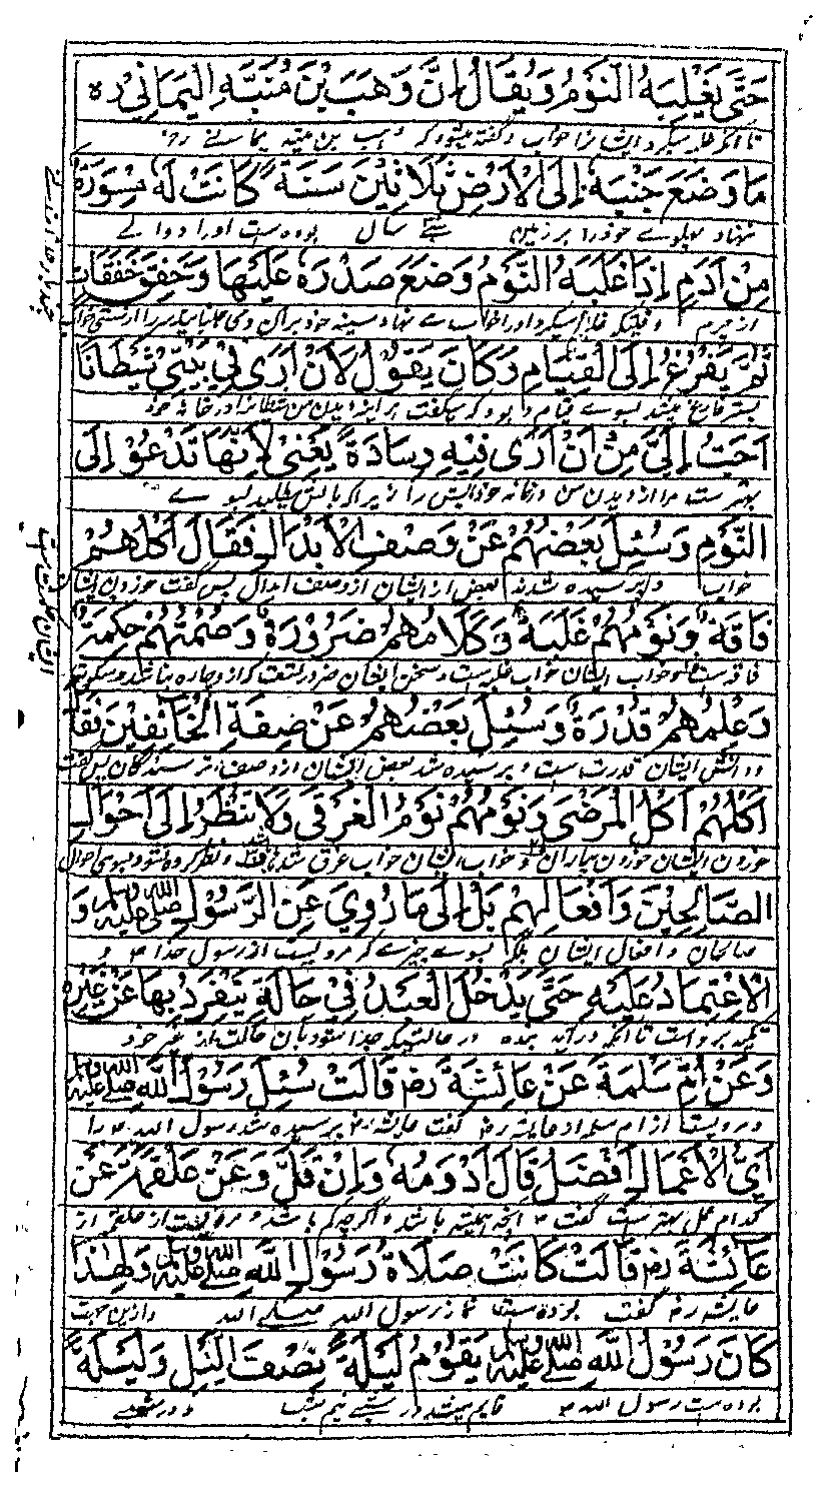 حَتَّى يَغْلِبَهُ النَّوْمُ وَيُقَالُ إِنَّ وَهَبَ بْنَ مُنَبِّهِ الْيَمَانِيْ رہ
تا آنکه غلبه میکرد ایشانرا خواب و گفته میشود که وهب بن منبه یمانی رح
مَا وَضَعَ جَنْبَهُ إِلَى الْأَرْضِ ثَلَاثِيْنَ سَنَةً كَانَتْ لَهُ مِسْوَرَةٌ
نهاد پهلوے خود را بر زمین سال بوده است اورا
مِنْ اَدَمٍ إِذَا غَلَبَهُ النَّوْمُ وَضَعَ صَدْرَهُ عَلَيْهَا وَخَفِقَ خَفَقَاتٍ
از چرم وقتیکه غلبه میکرد اورا خواب مے نهاد سینه خود بران
ثُمَّ يَفْزَعُ إِلَى الْقِيَامِ وَكَانَ يَقُوْلُ لَأَنْ اَرَى فِيْ بَيْتِيْ شَيْطَانًا
قیام و بود که میگفت هر آینه دیدن من شیطانرا در خانه خود
اَحَبُّ إِلَيَّ مِنْ اَنْ اَرَى فِيْهِ وِسَادَةً يَعْنِيْ لِأَنَّهَا تَدْعُوْ إِلَى
بهتر ست مرا از دیدن من در خانه خود بالش را زیراکه بالش میطلبد بسوے
النَّوْمِ وَسُئِلَ بَعْضُهُمْ عَنْ وَصْفِ الْأَبْدَالِ فَقَالَ اَكْلُهُمْ
خواب و پرسیده شدند بعض از ایشان از وصف ابدال پس گفت خوردن ایشان
فَاقَةٌ وَنَوْمُهُمْ غَلَبَةٌ وَكَلَامُهُمْ ضَرُوْرَةٌ وَصُمْتُهُمْ حِكْمَةٌ
فاقه است و خواب ایشان خواب غلبه است و سخن ایشان
وَعِلْمُهُمْ قُدْرَةٌ وَسُئِلَ بَعْضُهُمْ عَنْ صِفَةِ الْخَائِفِيْنَ فَقَا
و دانش ایشان قدرت ست و پرسیده شد بعض ایشان از وصف ترسندگان پس گفت
اَكْلُهُمْ اَكْلُ الْمَرْضَى وَنَوْمُهُمْ نَوْمُ الْغَرْقَى وَلَا تَنْظُرْ إِلَى اَحْوَالِ
خوردن ایشان خوردن بیماران و خواب ایشان خواب غرق شدن
الصَّالِحِيْنَ وَاَفْعَالِهِمْ بَلْ إِلَى مَا رُوِيَ عَنِ الرَّسُوْلِ صلى الله عليه وسلم وَ
صالحان و افعال ایشان بلکه بسوے چیزے که مرویست از رسول خدا ص و
الْاِعْتِمَادُ عَلَيْهِ حَتَّى يَدْخُلَ الْعَبْدُ فِيْ حَالَةٍ يَتَفَرَّدُ بِهَا عَنْ غَيْرِهٖ
تکیه بر وست تا آنکه در آید بنده در حالتیکه جدا شود بان حالت از غیر خود
وَعَنْ اُمِّ سَلَمَةَ عَنْ عَائِشَةَ رض قَالَتْ سُئِلَ رَسُوْلُ اللّٰهِ صلى الله عليه وسلم
و مرویست از ام سلمه از عایشه رض گفت عایشه رض پرسیده شد رسول الله ص را
اَيُّ الْأَعْمَالِ اَفْضَلُ قَالَ اَدْوَمُهٗ وَاِنْ قَلَّ وَعَنْ عَلْقَمَةَ عَنْ
کدام عمل بهتر ست گفت ص آنچه همیشه باشد و اگرچه کم باشد و مرویست از علقمه از
عَائِشَةَ رض قَالَتْ كَانَتْ صَلَاةُ رَسُوْلِ اللّٰهِ صلى الله عليه وسلم وَلِهٰذَا
عایشه رض گفت بوده است نماز رسول الله صلے الله وازین جهت
كَانَ رَسُوْلُ اللّٰهِ صلى الله عليه وسلم يَقُوْمُ لَيْلَةً نِصْفَ اللَّيْلِ وَلَيْلَةً
بوده است رسول الله ص قایم میشد در شبے نیم شب و در شبے